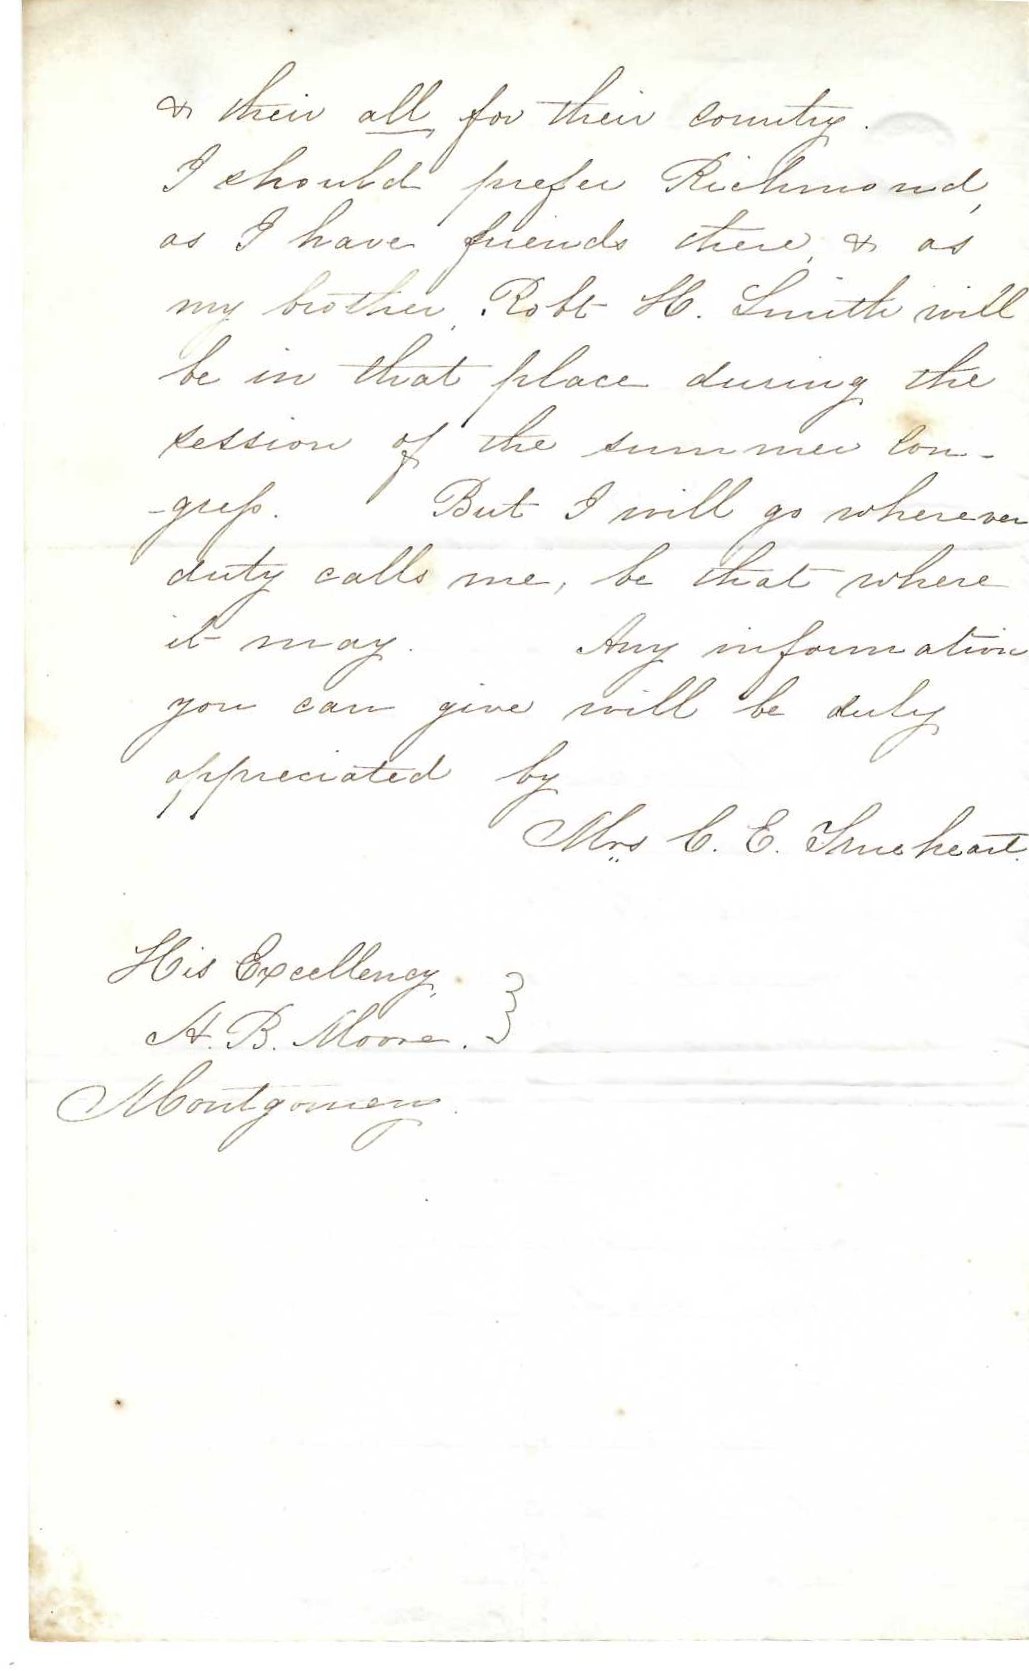 & their all for their country.
I should prefer Richmond,
as I have friends there, & as
my brother, Robt H. Smith will
be in that place during the
session of the summer Con-
-gress. But I will go wherever
duty calls me, be that where
it may. Any information
you can give will be duly
appreciated by
Mrs C. E. Trueheart.
His Excellency,
A. B. Moore. }
Montgomery.